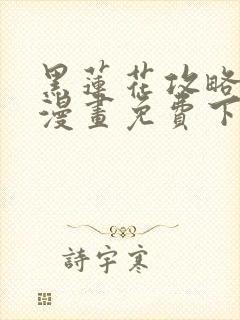 黑蓮花攻略
漫畫免費下
詩宇寒